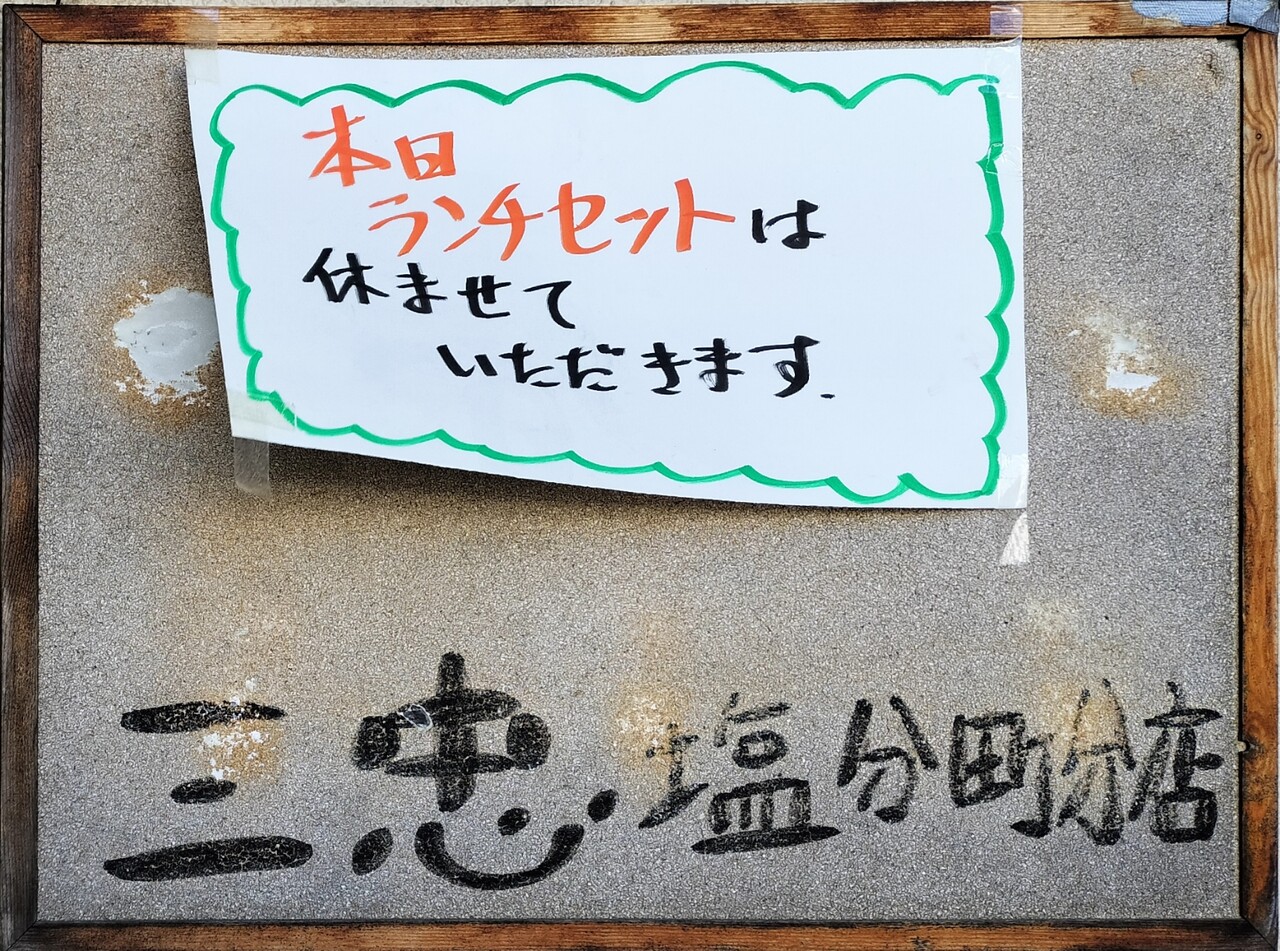 本日
ランチセットは
休ませて
いただきます.
三忠 塩分町分店